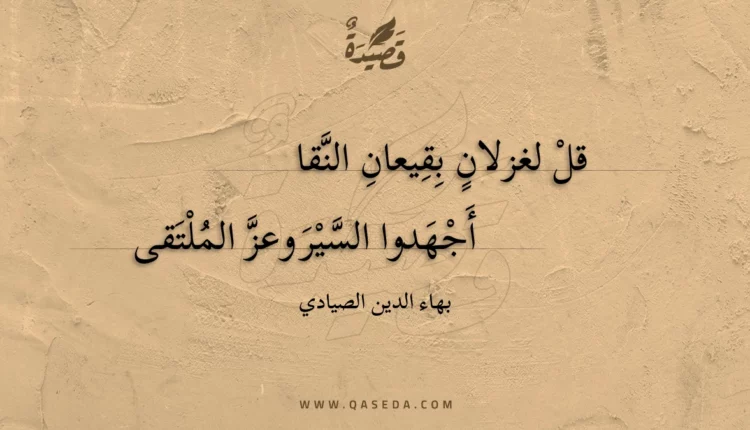 قَصِيدَةٌ
قلْ لغزلانٍ بِقِيعانِ النَّقا
أَجْهَدوا السَّيْرَ وعزَّ المُلْتَقى
بهاء الدين الصيادي
WWW.QASEDA.COM